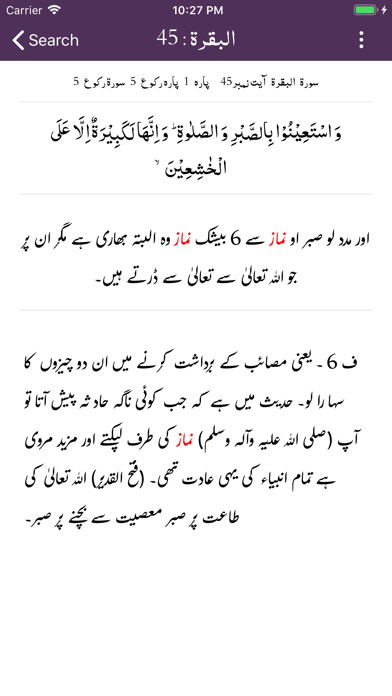 Carrier 10:27 PM
Search البقرة : 45
سورة البقرة آیت نمبر45 پارہ 1 پارہ رکوع 5 سورۃ رکوع 5
وَاسْتَعِیْنُوْا بِالصَّبْرِ وَالصَّلٰوةِ ؕ وَاِنَّهَا لَكَبِیْرَةٌ اِلَّا عَلَى
الْخٰشِعِیْنَ ۙ
اور مدد لو صبر او نماز سے 6 بیشک نماز وہ البتہ بھاری ہے مگر ان پر
جو اللہ تعالیٰ سے تعالیٰ سے ڈرتے ہیں۔
ف 6 ۔ یعنی مصائب کے برداشت کرنے میں ان دو چیزوں کا
سہا را لو۔ حدیث میں ہے کہ جب کوئی ناگہ حاد ثہ پیش آتا تو
آپ (صلی اللہ علیہ وآلہ وسلم) نماز کی طرف لپکتے اور مزید مروی
ہے تمام انبیاء کی یہی عادت تھی۔ (فتح القدیر) اللہ تعالیٰ کی
طاعت پر صبر معصیت سے بچنے پر صبر۔